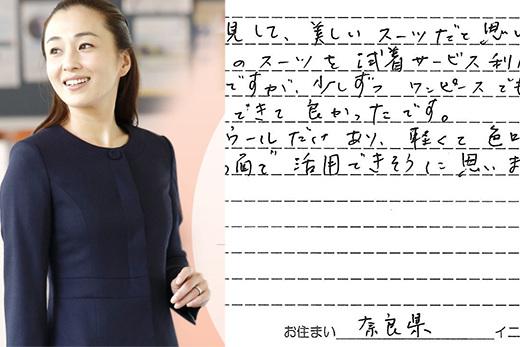 見して、美しいスーツだと思い
のスーツを試着サービス利用
ですが、少しずつワンピースでも
できて良かったです。
ウールだけあり、軽くて色
面で活用できそうに思いま
お住まい 奈良県 イニ